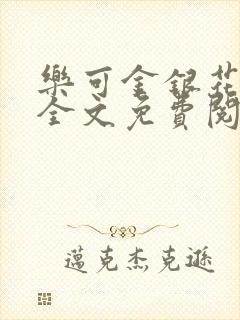 樂可金銀花
全文免費閱
邁克杰克遜